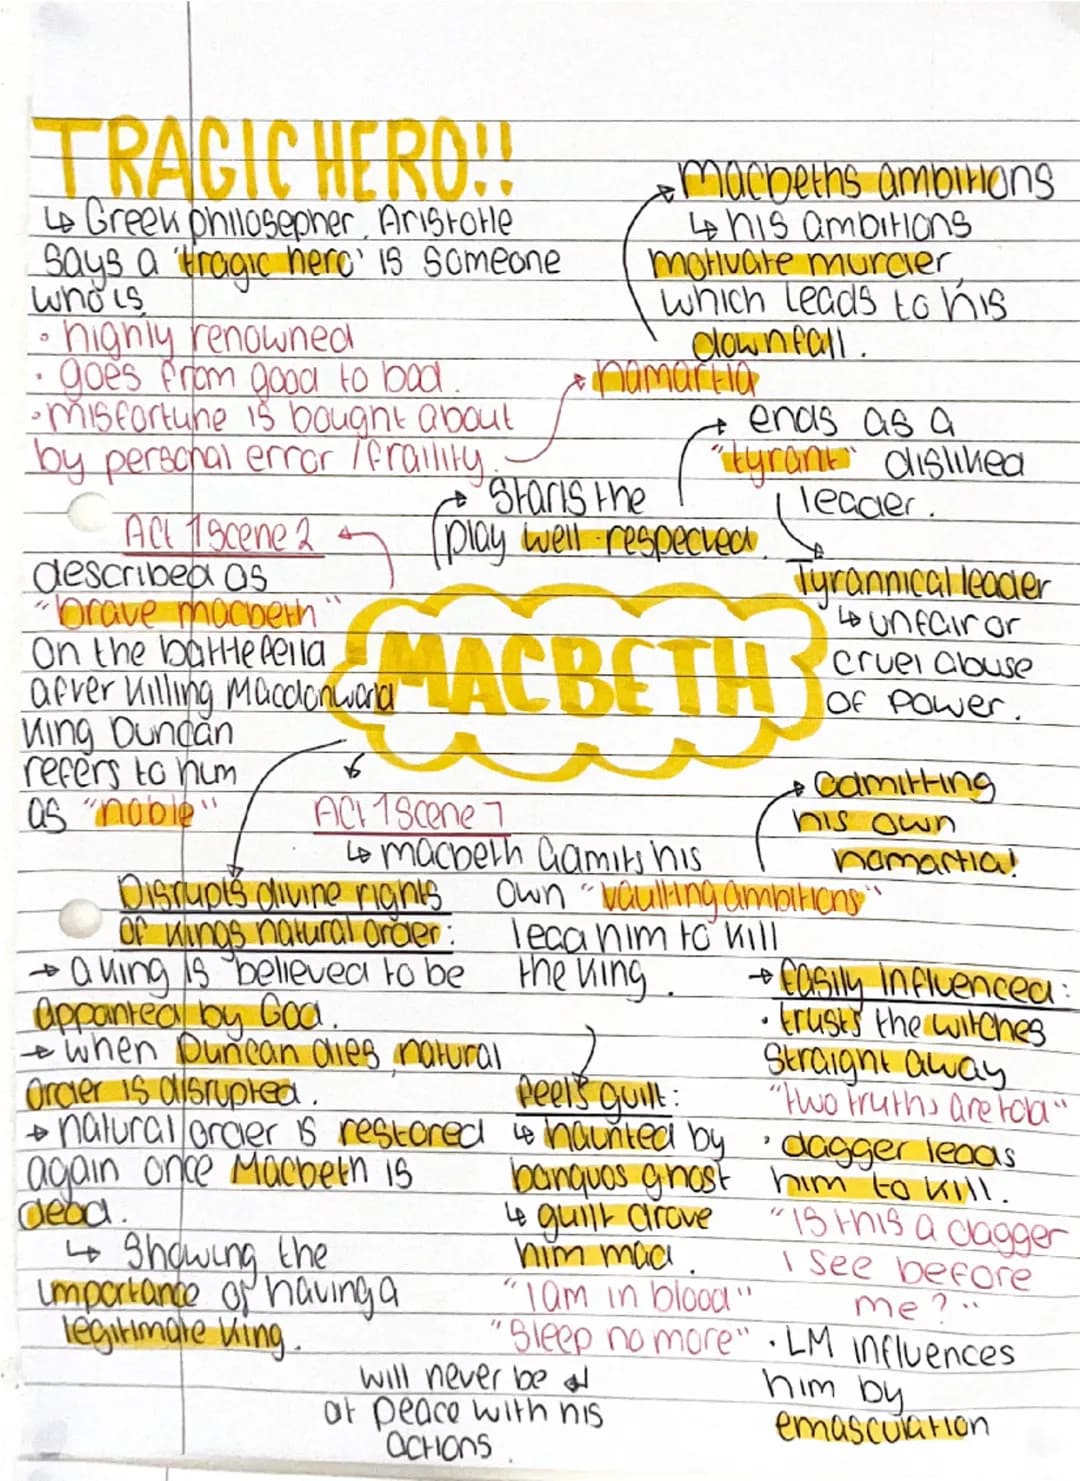 TRAGIC HERO!!
↳ Greek philosepher, Aristotle
says a 'tragic hero' is someone
who is
• highly renowned
• goes from good to bad.
• misfortune is bought about
by personal error / fraility.
hamartia
macbeths ambitions
↳ his ambitions
motivate murder
which leads to his
downfall.
ends as a
"tyrant" disliked
leader.
Tyrannical leader
↳ unfair or
cruel abuse
of power.
starts the
play well-respected.
MACBETH
Act 1 Scene 2
described as
"brave macbeth"
on the battlefeild
after killing Macdonwald
King Duncan
refers to him
as "noble"
Act 1 Scene 7
↳ macbeth admits his
own "vaulting ambitions"
lead him to kill
the king.
admitting
his own
hamartia!
Disrupts divine rights
of kings natural order:
→ a king is believed to be
appointed by God.
→ when Duncan dies, natural
order is disrupted.
→ natural order is restored
again once Macbeth is
dead.
↳ showing the
importance of having a
legitimate king.
feels guilt:
↳ haunted by
banquos ghost
↳ guilt drove
him mad.
"I am in blood"
"Sleep no more"
will never be
at peace with his
actions.
→ Easily influenced:
• trusts the witches
straight away
"two truths are told"
• dagger leads
him to kill.
"Is this a dagger
I see before
me?"
• LM influences
him by
emasculation